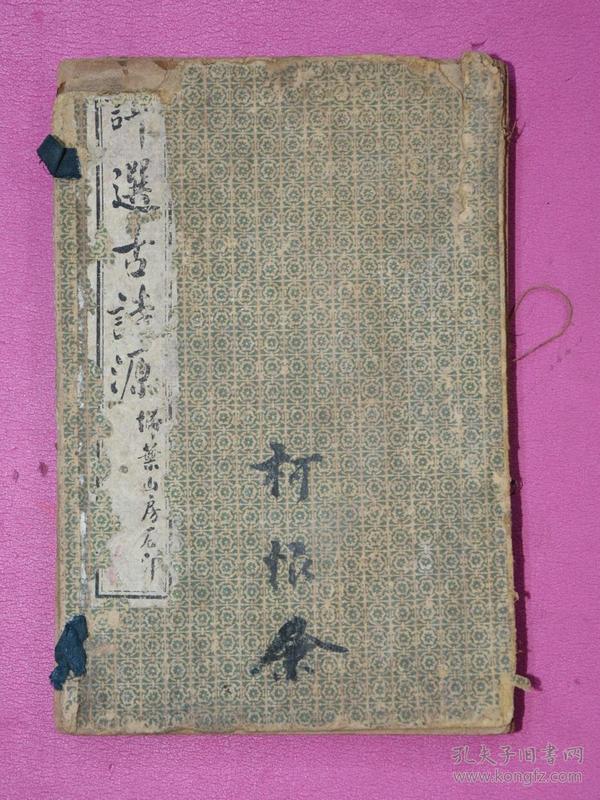 評選古詩源
掃葉山房石印
柯
孔夫子旧书网
www.kongfz.com